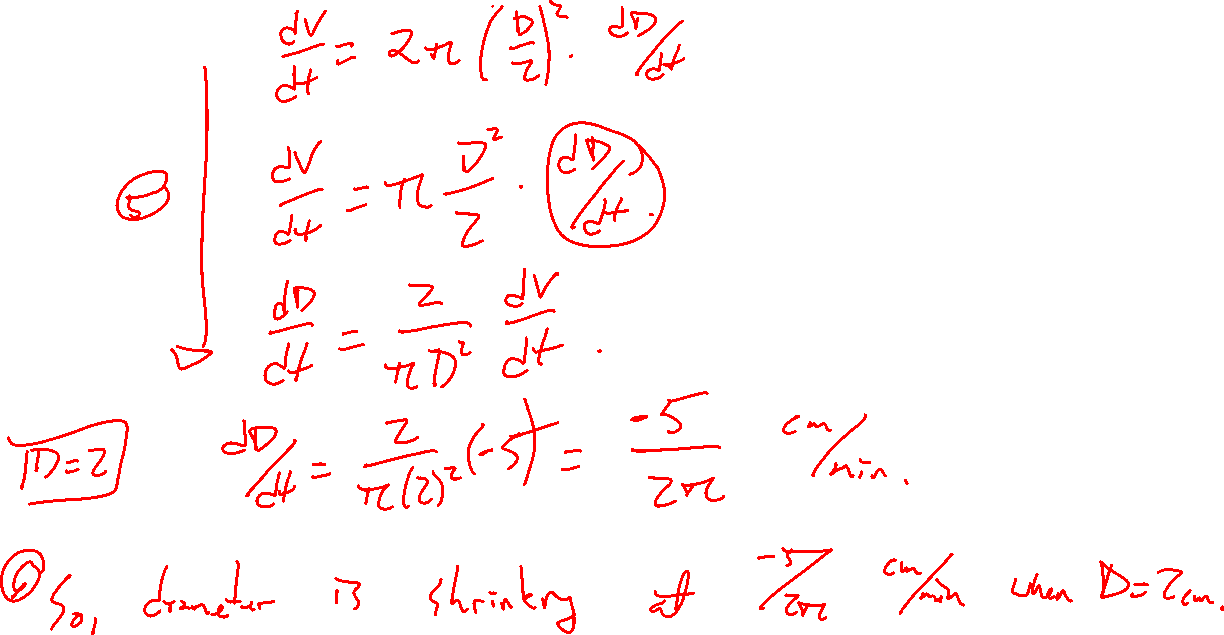 dV/dt = 2π (D/2)² · dD/dt
⑤ dV/dt = π D²/2 · dD/dt.
dD/dt = 2/(πD²) dV/dt.
D=2 dD/dt = 2/(π(2)²) (-5) = -5/(2π) cm/min.
⑥ So, diameter is shrinking at -5/2π cm/min when D=2cm.